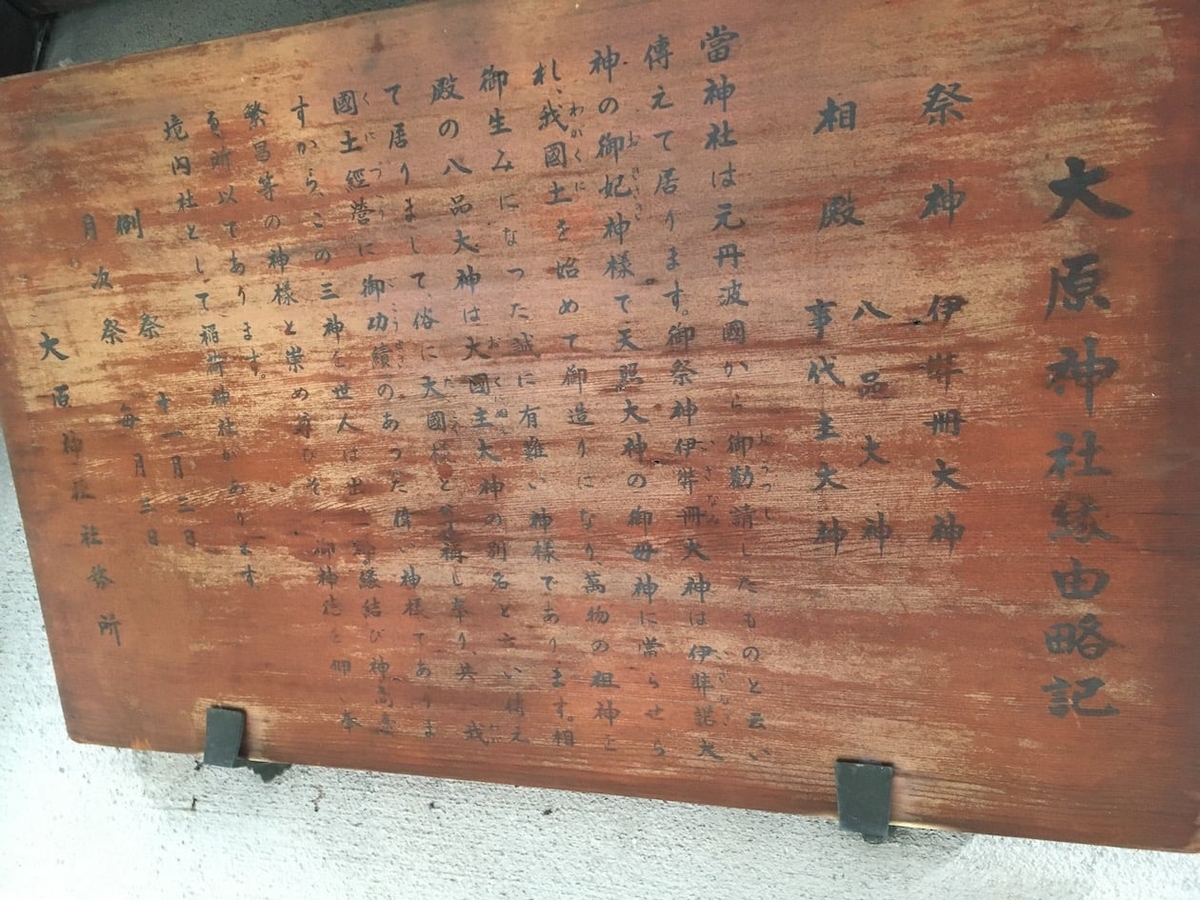 大原神社縁由略記
祭神 伊弉冊大神
相殿 八品大神
事代主大神
當神社は元丹波國から御勸請したものと云い
傳えて居ります。御祭神伊弉冊大神は伊弉諾大
神の御妃神樣で天照大神の御母神に當らせら
れ、我國土を始めて御造りになり、萬物の祖神を
御生みになった誠に有難い神樣であります。相
殿の八品大神は大國主大神の別名と云い傳え
て居りまして、俗に大國樣と稱し奉り、共に我
國土經營に御功績のあつた偉い神樣でありま
すから、この三神を世人は出 縁結び神
繁昌等の神樣と崇め 御神徳を仰 奉
る所以であります。
境内社として稲荷神社があります
例祭 十一月三日
月次祭 毎月三日
大原神社社務所